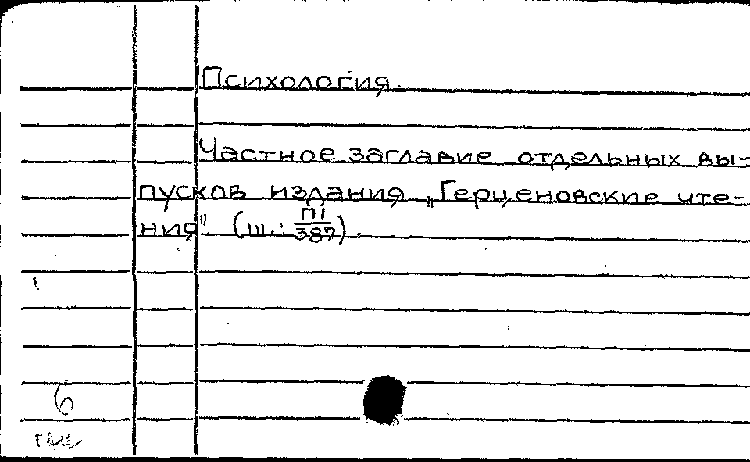 Психология.
Частное заглавие отдельных вы-
пусков издания „Герценовские чте-
ния" (ш.: П1/387).
6